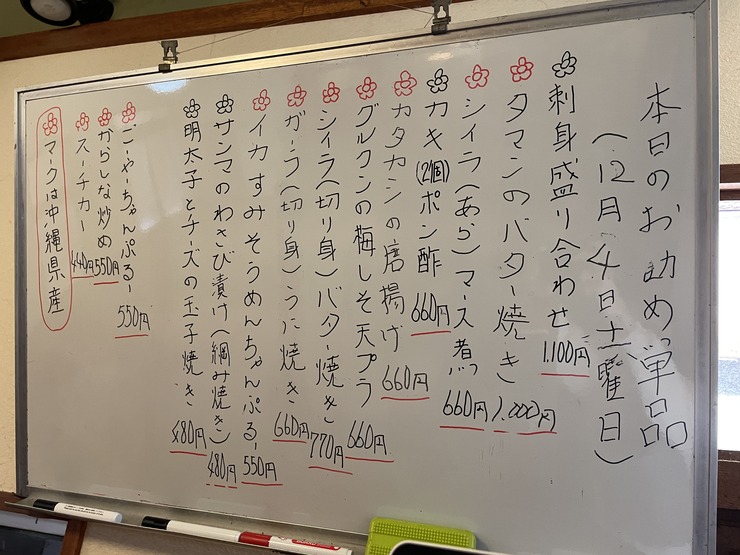 本日のお勧め単品
(12月4日土曜日)
刺身盛り合わせ 1,100円
タマンのバター焼き 1,000円
シイラ(あら)マース煮 660円
カキ(2個)ポン酢 660円
カタカシの唐揚げ 660円
グルクンの梅しそ天プラ 660円
シイラ(切り身)バター焼き 770円
ガーラ(切り身)うに焼き 660円
イカすみそうめんちゃんぷるー 550円
サンマのわさび漬け(網み焼き) 480円
明太子とチーズの玉子焼き 480円
ごーやーちゃんぷるー 550円
からしな炒め 550円
スーチカー 440円
マークは沖縄県産